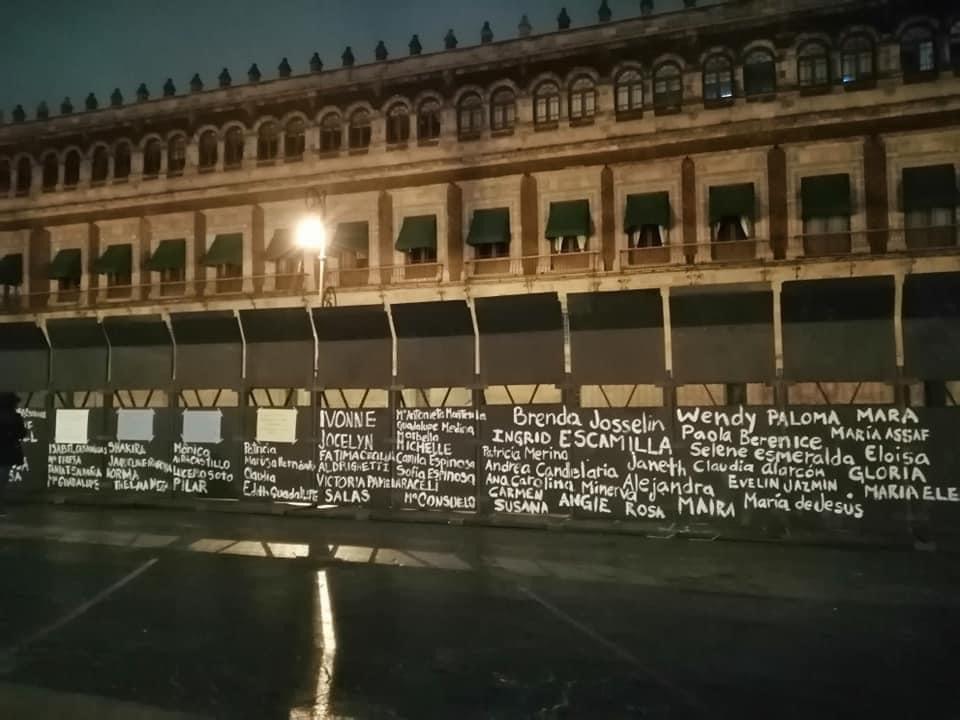 SHAKIRA
NORMA
THELMA
Mónica
AIDA CASTILLO
LUCERO SOTO
PILAR
Patricia
Marisa Hernández
Claudia
Edith Guadalupe
IVONNE
JOCELYN
FATIMA CECILIA
ALDRIGHETTI
VICTORIA PAMELA
SALAS
Guadalupe Medina
MICHELLE
Camila Espinosa
Sofia Espinosa
ARACELI
Mª CONSUELO
Brenda Josselin
INGRID ESCAMILLA
Patricia Merino
Andrea Candielaria Janeth
Ana Carolina Minerva Alejandra
CARMEN
SUSANA ANGIE ROSA MAIRA
Wendy PALOMA MARA
Paola Berenice MARÍA ASSAF
Selene esmeralda Eloisa
Claudia alarcón GLORIA
EVELIN JAZMIN MARIA ELE
María deJesús